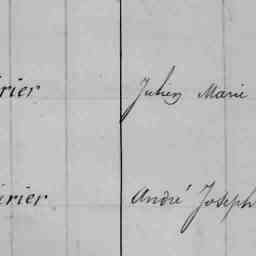 rier Julien Marie
rier André Joseph